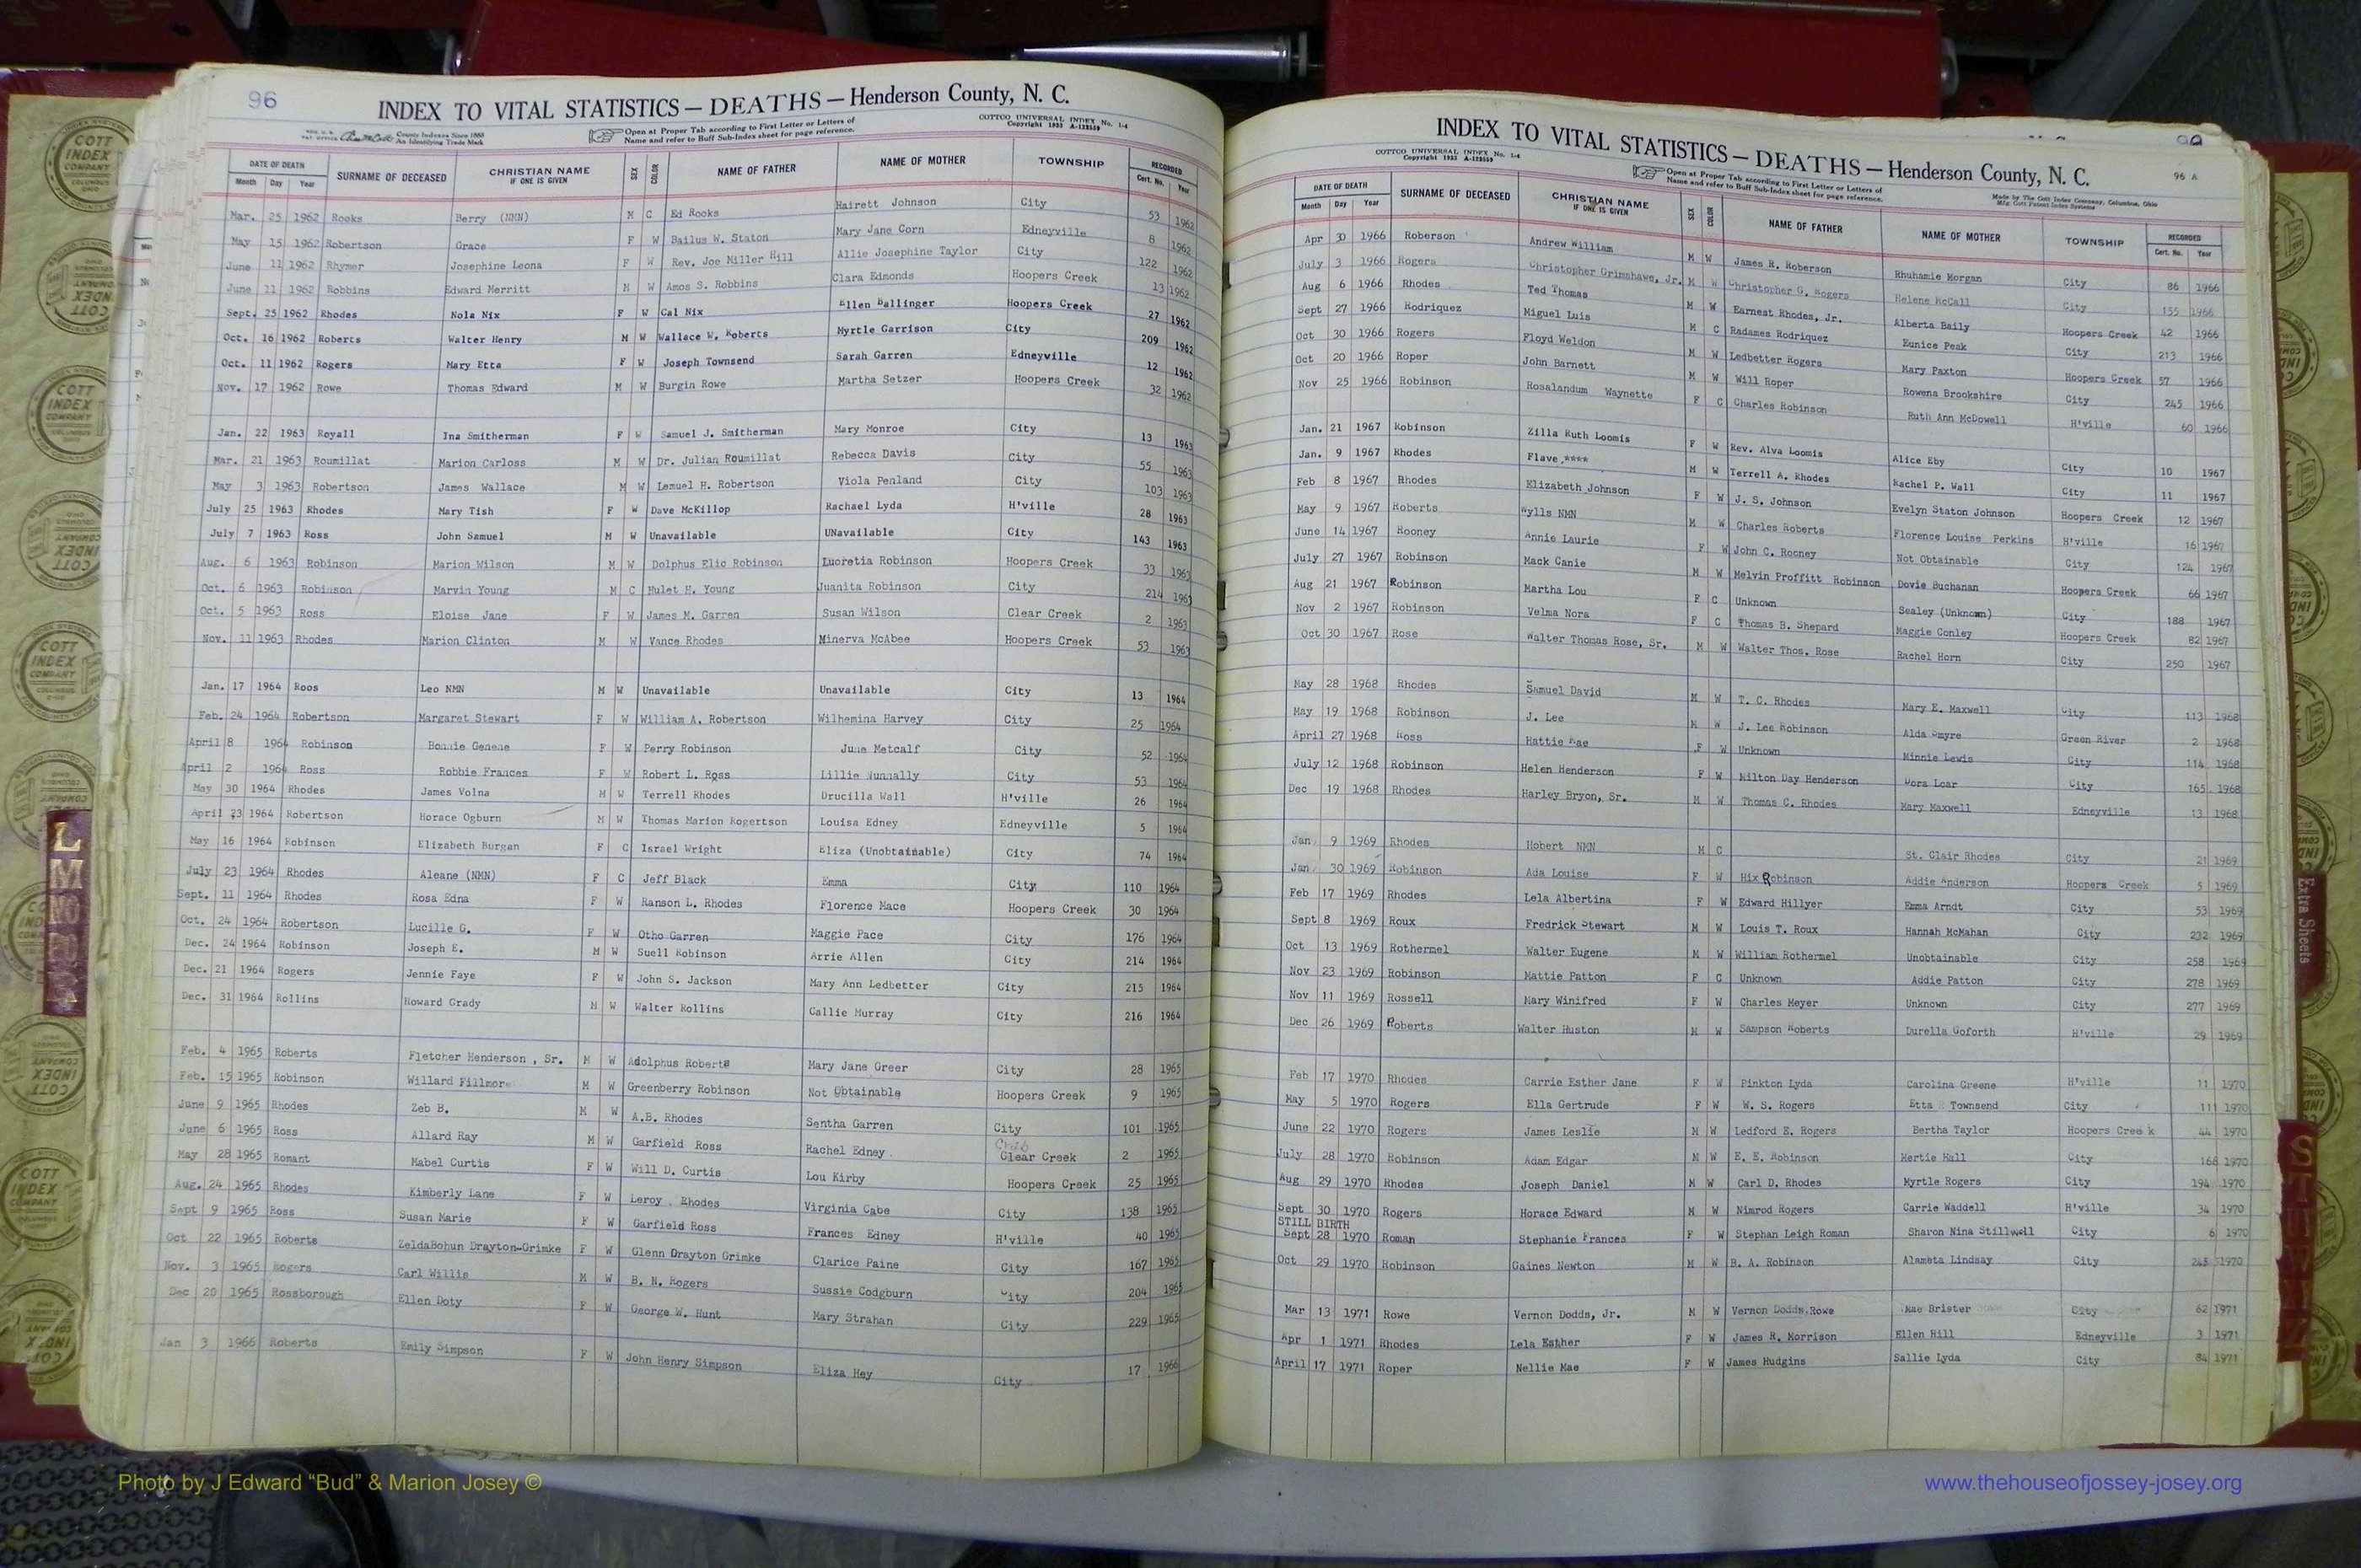 96
INDEX TO VITAL STATISTICS — DEATHS — Henderson County, N. C.
County Indexes Since 1888
An Identifying Trade Mark
Open at Proper Tab according to First Letter or Letters of
Name and refer to Buff Sub-Index sheet for page reference.
COTTCO UNIVERSAL INDEX No. 1-4
Copyright 1933 A-112559
DATE OF DEATH Month Day Year SURNAME OF DECEASED CHRISTIAN NAME IF ONE IS GIVEN SEX COLOR NAME OF FATHER NAME OF MOTHER TOWNSHIP RECORDED Cert. No. Year
Mar. 25 1962 Rooks Berry (NMN) M C Ed Rooks Hairett Johnson City 53 1962
May 15 1962 Robertson Grace F W Bailus W. Staton Mary Jane Corn Edneyville 8 1962
June 11 1962 Rhymer Josephine Leona F W Rev. Joe Miller Hill Allie Josephine Taylor City 122 1962
June 11 1962 Robbins Edward Merritt M W Amos S. Robbins Clara Edmonds Hoopers Creek 13 1962
Sept. 25 1962 Rhodes Nola Nix F W Cal Nix Ellen Ballinger Hoopers Creek 27 1962
Oct. 16 1962 Roberts Walter Henry M W Wallace W. Roberts Myrtle Garrison City 209 1962
Oct. 11 1962 Rogers Mary Etta F W Joseph Townsend Sarah Garren Edneyville 12 1962
Nov. 17 1962 Rowe Thomas Edward M W Burgin Rowe Martha Setzer Hoopers Creek 32 1962
Jan. 22 1963 Royall Ina Smitherman F W Samuel J. Smitherman Mary Monroe City 13 1963
Mar. 21 1963 Roumillat Marion Carloss M W Dr. Julian Roumillat Rebecca Davis City 55 1963
May 3 1963 Robertson James Wallace M W Lemuel H. Robertson Viola Penland City 103 1963
July 25 1963 Rhodes Mary Tish F W Dave McKillop Rachael Lyda H'ville 28 1963
July 7 1963 Ross John Samuel M W Unavailable UNavailable City 143 1963
Aug. 6 1963 Robinson Marion Wilson M W Dolphus Elic Robinson Lucretia Robinson Hoopers Creek 33 1963
Oct. 6 1963 Robinson Marvin Young M C Hulet H. Young Juanita Robinson City 214 1963
Oct. 5 1963 Ross Eloise Jane F W James M. Garren Susan Wilson Clear Creek 2 1963
Nov. 11 1963 Rhodes Marion Clinton M W Vance Rhodes Minerva McAbee Hoopers Creek 53 1963
Jan. 17 1964 Roos Leo NMN M W Unavailable Unavailable City 13 1964
Feb. 24 1964 Robertson Margaret Stewart F W William A. Robertson Wilhemina Harvey City 25 1964
April 8 1964 Robinson Bonnie Genene F W Perry Robinson June Metcalf City 52 1964
April 2 1964 Ross Robbie Frances F W Robert L. Ross Lillie Nunnally City 53 1964
May 30 1964 Rhodes James Volna M W Terrell Rhodes Drucilla Wall H'ville 26 1964
April 23 1964 Robertson Horace Ogburn M W Thomas Marion Rogertson Louisa Edney Edneyville 5 1964
May 16 1964 Robinson Elizabeth Burgan F C Israel Wright Eliza (Unobtainable) City 74 1964
July 23 1964 Rhodes Aleane (NMN) F C Jeff Black Emma City 110 1964
Sept. 11 1964 Rhodes Rosa Edna F W Ranson L. Rhodes Florence Mace Hoopers Creek 30 1964
Oct. 24 1964 Robertson Lucille G. F W Otho Garren Maggie Pace City 176 1964
Dec. 24 1964 Robinson Joseph E. M W Suell Robinson Arrie Allen City 214 1964
Dec. 21 1964 Rogers Jennie Faye F W John S. Jackson Mary Ann Ledbetter City 215 1964
Dec. 31 1964 Rollins Howard Grady M W Walter Rollins Callie Murray City 216 1964
Feb. 4 1965 Roberts Fletcher Henderson , Sr. M W Adolphus Roberts Mary Jane Greer City 28 1965
Feb. 15 1965 Robinson Willard Fillmore M W Greenberry Robinson Not Obtainable Hoopers Creek 9 1965
June 9 1965 Rhodes Zeb B. M W A.B. Rhodes Sentha Garren City 101 1965
June 6 1965 Ross Allard Ray M W Garfield Ross Rachel Edney Crab Clear Creek 2 1965
May 28 1965 Romant Mabel Curtis F W Will D. Curtis Lou Kirby Hoopers Creek 25 1965
Aug. 24 1965 Rhodes Kimberly Lane F W Leroy Rhodes Virginia Cabe City 138 1965
Sept 9 1965 Ross Susan Marie F W Garfield Ross Frances Edney H'ville 40 1965
Oct 22 1965 Roberts ZeldaBohun Drayton-Grimke F W Glenn Drayton Grimke Clarice Paine City 167 1965
Nov. 3 1965 Rogers Carl Willis M W B. N. Rogers Sussie Codgburn City 204 1965
Dec 20 1965 Rossborough Ellen Doty F W George W. Hunt Mary Strahan City 229 1965
Jan 3 1966 Roberts Emily Simpson F W John Henry Simpson Eliza Hey City 17 1966
INDEX TO VITAL STATISTICS — DEATHS — Henderson County, N. C.
COTTCO UNIVERSAL INDEX No. 1-4
Copyright 1933 A-112559
Open at Proper Tab according to First Letter or Letters of
Name and refer to Buff Sub-Index sheet for page reference.
Made by The Cott Index Company, Columbus, Ohio
Mfg. Cott Patent Index Systems
96 A
DATE OF DEATH Month Day Year SURNAME OF DECEASED CHRISTIAN NAME IF ONE IS GIVEN SEX COLOR NAME OF FATHER NAME OF MOTHER TOWNSHIP RECORDED Cert. No. Year
Apr 30 1966 Roberson Andrew William M W James R. Roberson Rhuhamie Morgan City 86 1966
July 3 1966 Rogers Christopher Grimshawe, Jr. M W Christopher G. Rogers Helene McCall City 155 1966
Aug 6 1966 Rhodes Ted Thomas M W Earnest Rhodes, Jr. Alberta Baily Hoopers Creek 42 1966
Sept 27 1966 Rodriquez Miguel Luis M C Radames Rodriquez Eunice Peak City 213 1966
Oct 30 1966 Rogers Floyd Weldon M W Ledbetter Rogers Mary Paxton Hoopers Creek 57 1966
Oct 20 1966 Roper John Barnett M W Will Roper Rowena Brookshire City 245 1966
Nov 25 1966 Robinson Rosalandum Waynette F C Charles Robinson Ruth Ann McDowell H'ville 60 1966
Jan. 21 1967 Robinson Zilla Ruth Loomis F W Rev. Alva Loomis Alice Eby City 10 1967
Jan. 9 1967 Rhodes Flave **** M W Terrell A. Rhodes Rachel P. Wall City 11 1967
Feb 8 1967 Rhodes Elizabeth Johnson F W J. S. Johnson Evelyn Staton Johnson Hoopers Creek 12 1967
May 9 1967 Roberts Wylls NMN M W Charles Roberts Florence Louise Perkins H'ville 16 1967
June 14 1967 Rooney Annie Laurie F W John C. Rooney Not Obtainable City 124 1967
July 27 1967 Robinson Mack Canie M W Melvin Proffitt Robinson Dovie Buchanan Hoopers Creek 66 1967
Aug 21 1967 Robinson Martha Lou F C Unknown Sealey (Unknown) City 188 1967
Nov 2 1967 Robinson Velma Nora F C Thomas B. Shepard Maggie Conley Hoopers Creek 82 1967
Oct 30 1967 Rose Walter Thomas Rose, Sr. M W Walter Thos. Rose Rachel Horn City 250 1967
May 28 1968 Rhodes Samuel David M W T. C. Rhodes Mary E. Maxwell City 113 1968
May 19 1968 Robinson J. Lee M W J. Lee Robinson Alda Smyre Green River 2 1968
April 27 1968 Ross Hattie Mae F W Unknown Minnie Lewis City 114 1968
July 12 1968 Robinson Helen Henderson F W Milton Day Henderson Dora Loar City 165 1968
Dec 19 1968 Rhodes Harley Bryon, Sr. M W Thomas C. Rhodes Mary Maxwell Edneyville 13 1968
Jan. 9 1969 Rhodes Hobert NMN M C St. Clair Rhodes City 21 1969
Jan. 30 1969 Robinson Ada Louise F W Hix Robinson Addie Anderson Hoopers Creek 5 1969
Feb 17 1969 Rhodes Lela Albertina F W Edward Hillyer Emma Arndt City 53 1969
Sept 8 1969 Roux Fredrick Stewart M W Louis T. Roux Hannah McMahan City 232 1969
Oct 13 1969 Rothermel Walter Eugene M W William Rothermel Unobtainable City 258 1969
Nov 23 1969 Robinson Mattie Patton F C Unknown Addie Patton City 278 1969
Nov 11 1969 Rossell Mary Winifred F W Charles Meyer Unknown City 277 1969
Dec 26 1969 Roberts Walter Huston M W Sampson Roberts Durella Goforth H'ville 29 1969
Feb 17 1970 Rhodes Carrie Esther Jane F W Pinkton Lyda Carolina Greene H'ville 11 1970
May 5 1970 Rogers Ella Gertrude F W W. S. Rogers Etta Townsend City 111 1970
June 22 1970 Rogers James Leslie M W Ledford E. Rogers Bertha Taylor Hoopers Creek 44 1970
July 28 1970 Robinson Adam Edgar M W E. E. Robinson Mertie Hall City 166 1970
Aug 29 1970 Rhodes Joseph Daniel M W Carl D. Rhodes Myrtle Rogers City 194 1970
Sept 30 1970 Rogers Horace Edward M W Nimrod Rogers Carrie Waddell H'ville 34 1970
STILL BIRTH
Sept 28 1970 Roman Stephanie Frances F W Stephan Leigh Roman Sharon Nina Stillwell City 6 1970
Oct 29 1970 Robinson Gaines Newton M W B. A. Robinson Alameta Lindsay City 245 1970
Mar 13 1971 Rowe Vernon Dodds, Jr. M W Vernon Dodds Rowe Mae Brister City 62 1971
Apr 1 1971 Rhodes Lela Esther F W James R. Morrison Ellen Hill Edneyville 3 1971
April 17 1971 Roper Nellie Mae F W James Hudgins Sallie Lyda City 84 1971
Extra Sheets
COTT INDEX COMPANY
Photo by J Edward “Bud” & Marion Josey ©
www.thehouseofjossey-josey.org